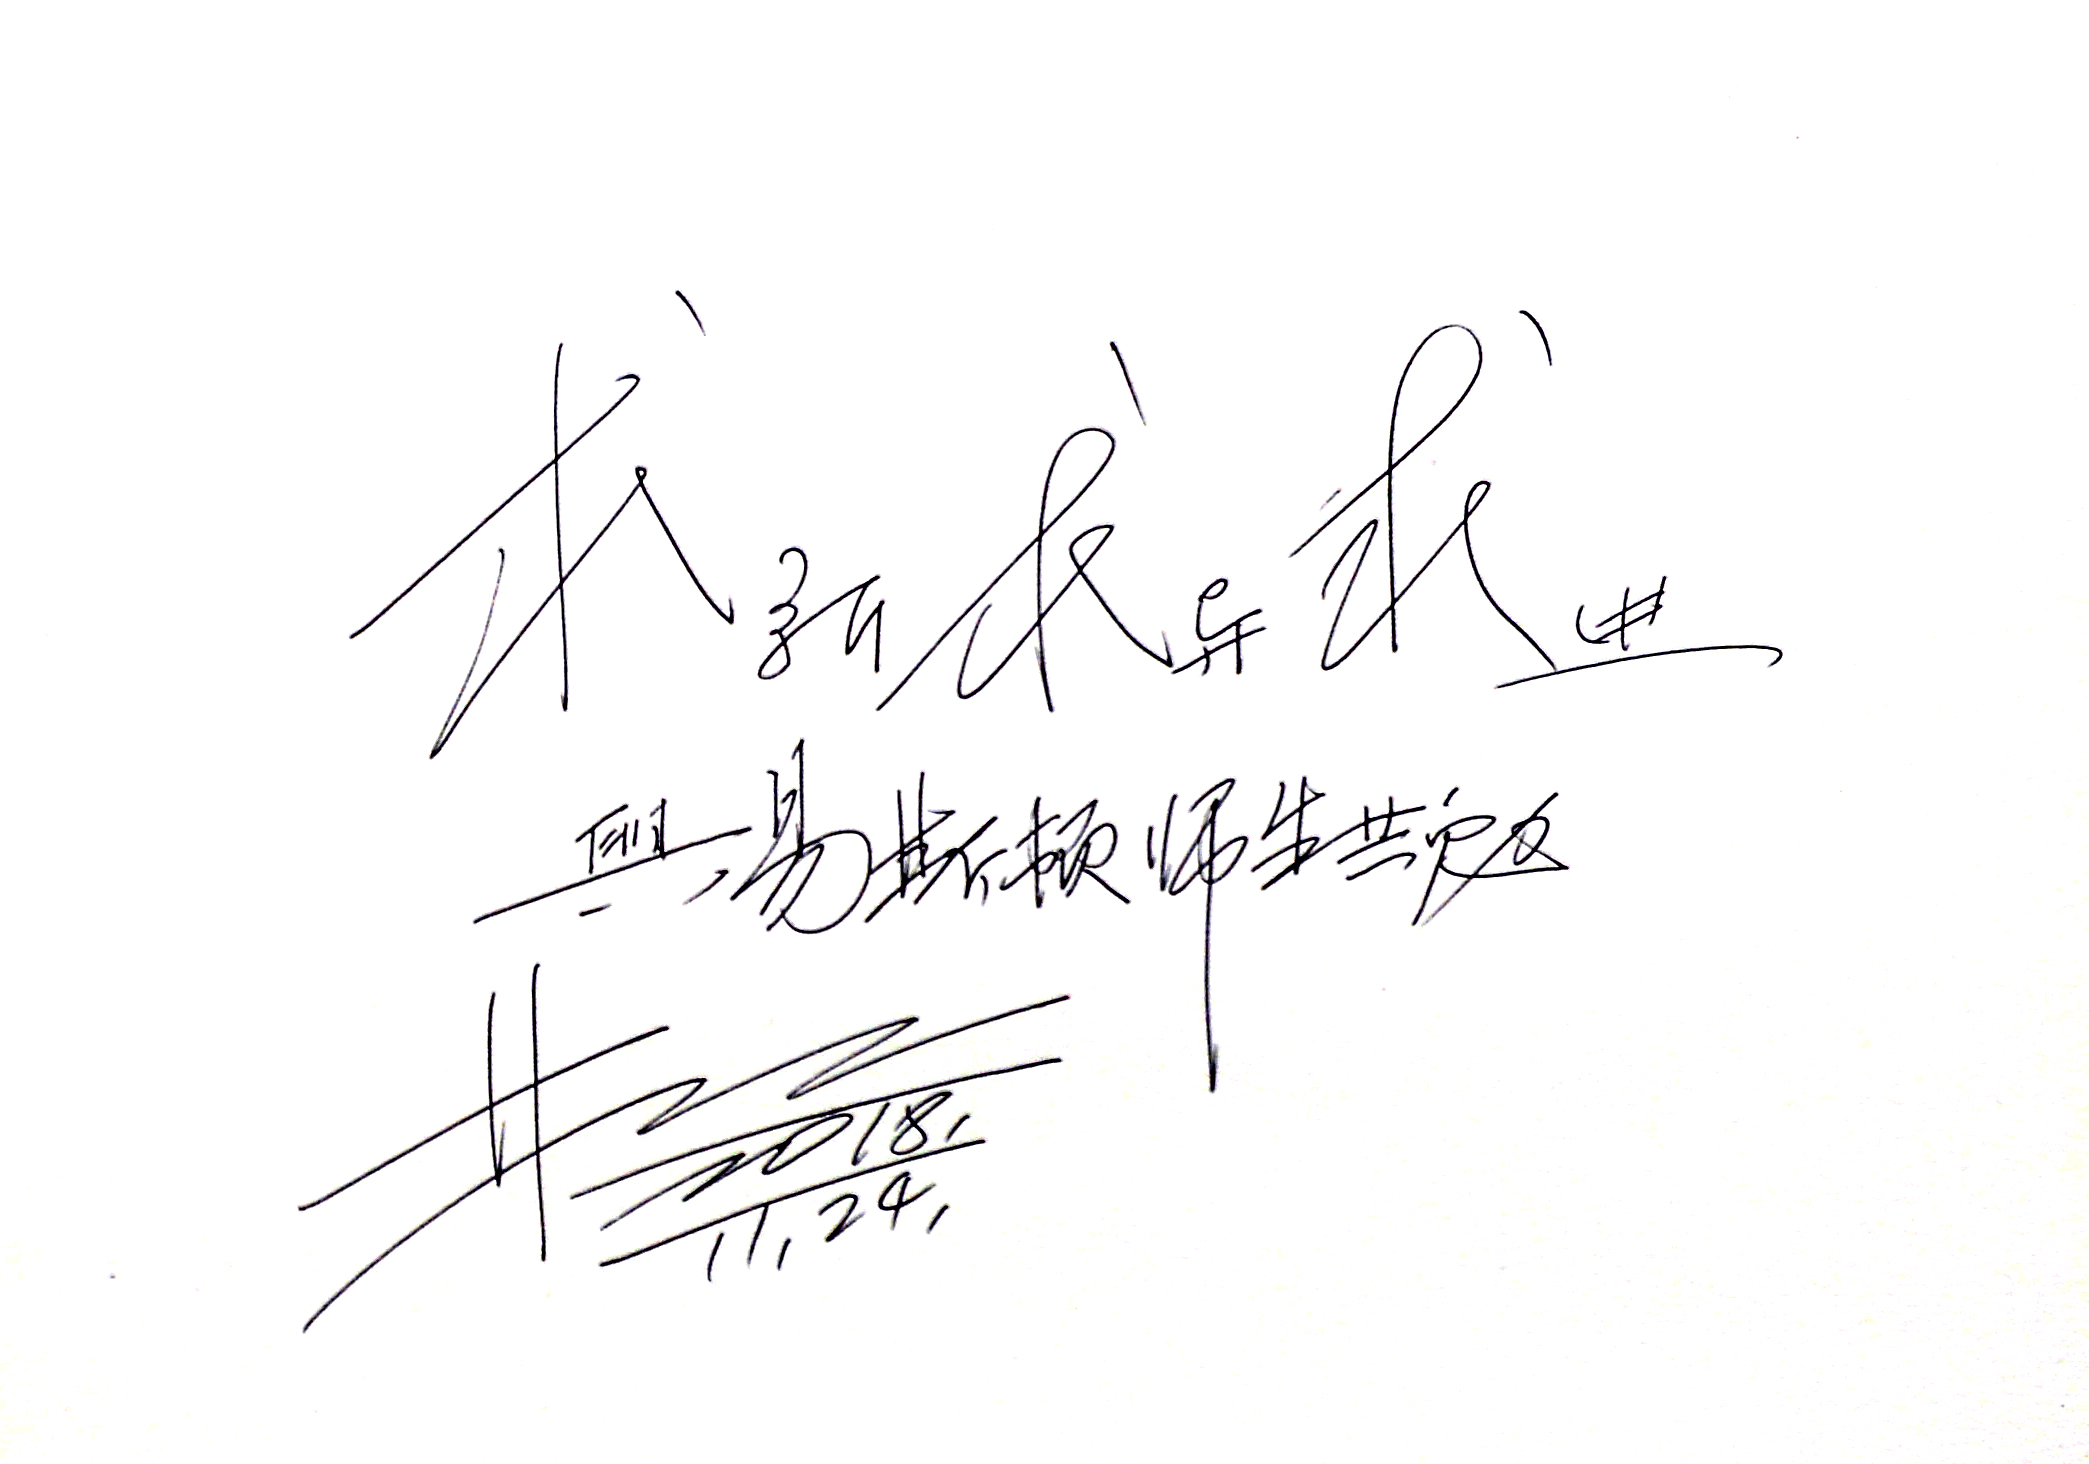 我新我异我进
與易斯顿师生共勉
2018.
11.24.